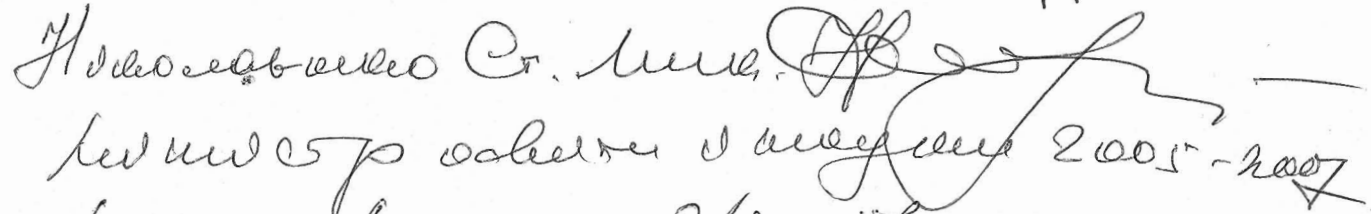 Ніколаєнко Ст. Мик. —
міністр освіти і науки 2005-2007